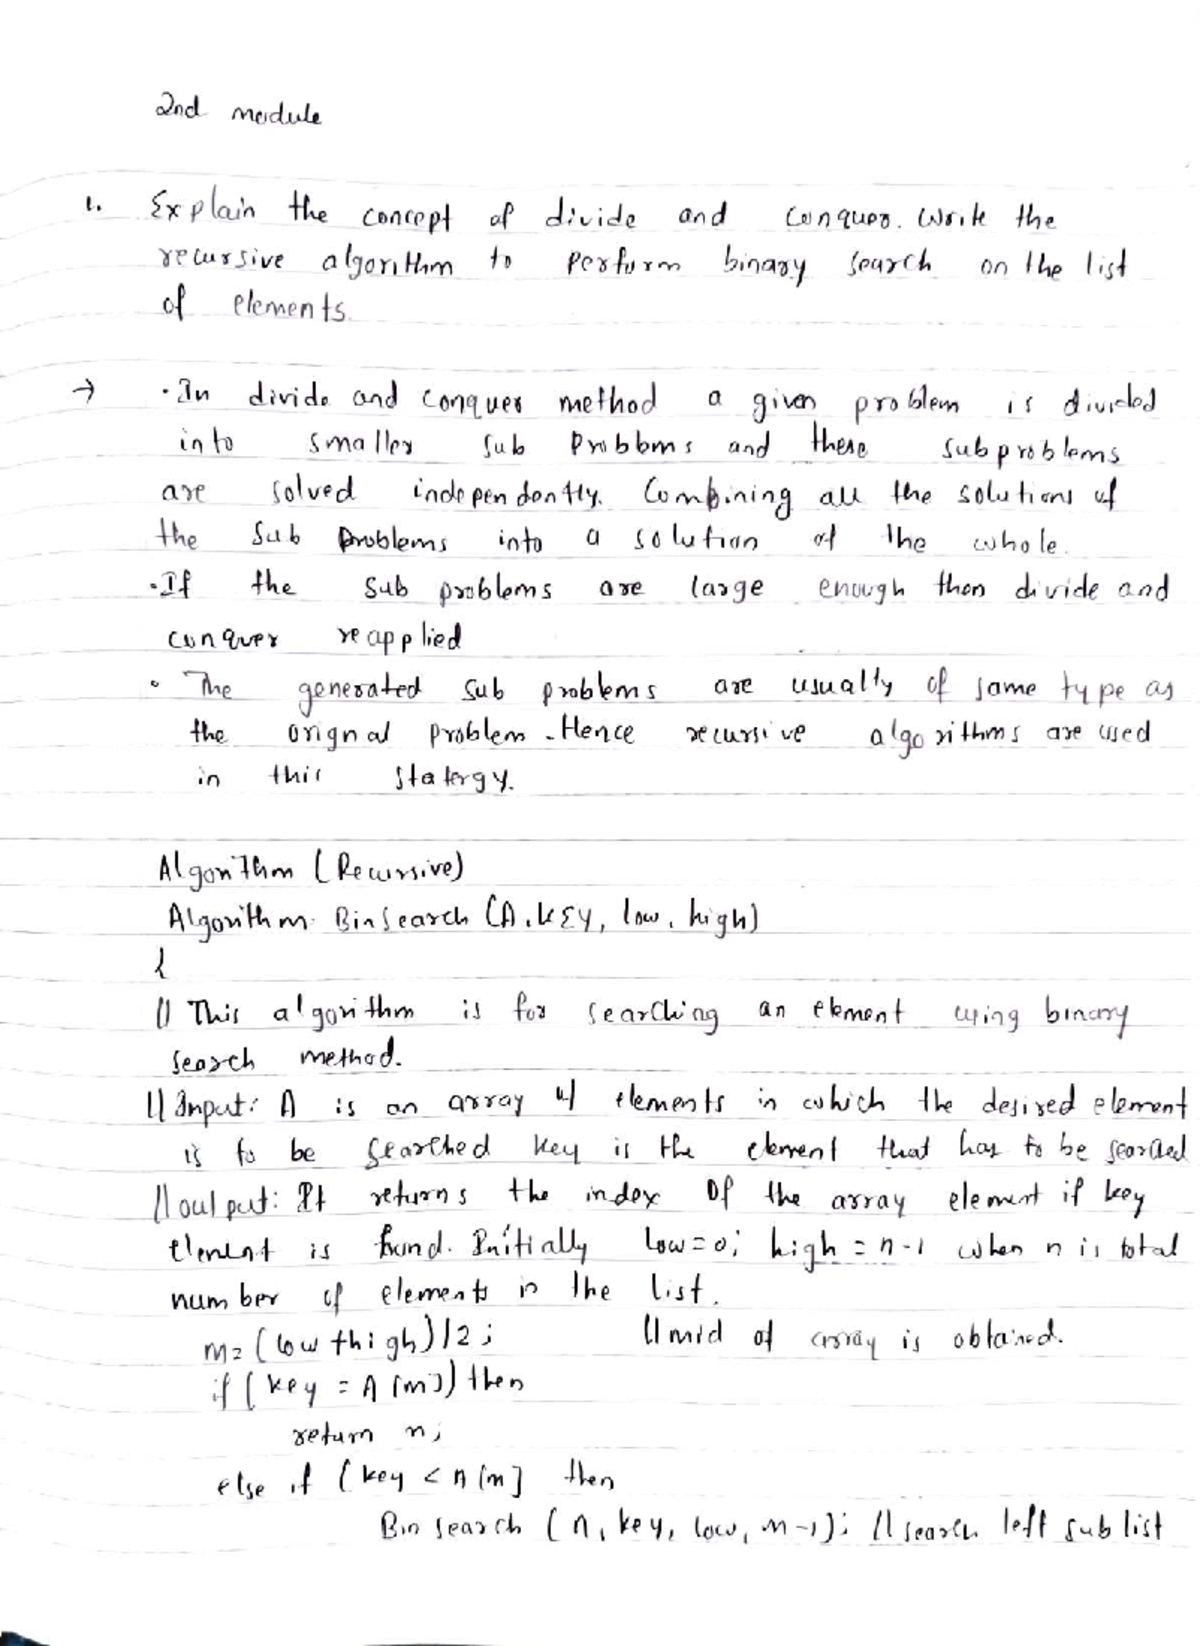 2nd module
1. Explain the concept of divide and conquer. Write the
recursive algorithm to perform binary search on the list
of elements.
→ · In divide and conquer method a given problem is divided
into smaller sub problems and these subproblems
are solved independently. Combining all the solutions of
the sub problems into a solution of the whole.
· If the sub problems are large enough then divide and
conquer reapplied
· The generated sub problems are usually of same type as
the orignal problem. Hence recursive algorithms are used
in this statergy.
Algorithm (Recursive)
Algorithm BinSearch (A, KEY, low, high)
{
// This algorithm is for searching an element using binary
search method.
// Input: A is an array of elements in which the desired element
is to be searched key is the element that has to be searched
// output: It returns the index of the array element if key
element is found. Initially low=0; high=n-1 when n is total
number of elements in the list.
m=(low+high)/2; //mid of array is obtained.
if (key = A[m]) then
return m;
else if (key < A[m] then
Bin search (A, key, low, m-1); // search left sub list